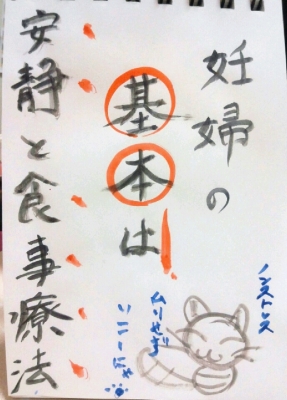 妊婦の
基本は!
安静と食事療法
ノンストレス
ムリせず
いこーにゃ